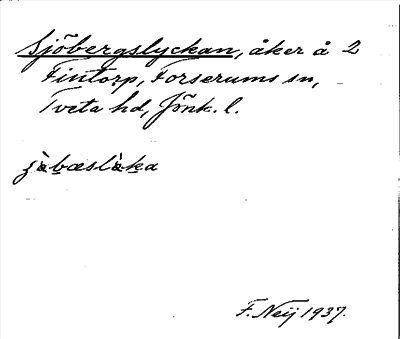 Sjöbergslyckan, åker å 2
Fintorp, Forserums sn,
Tveta hd, Jönk. l.
F. Neij 1937.